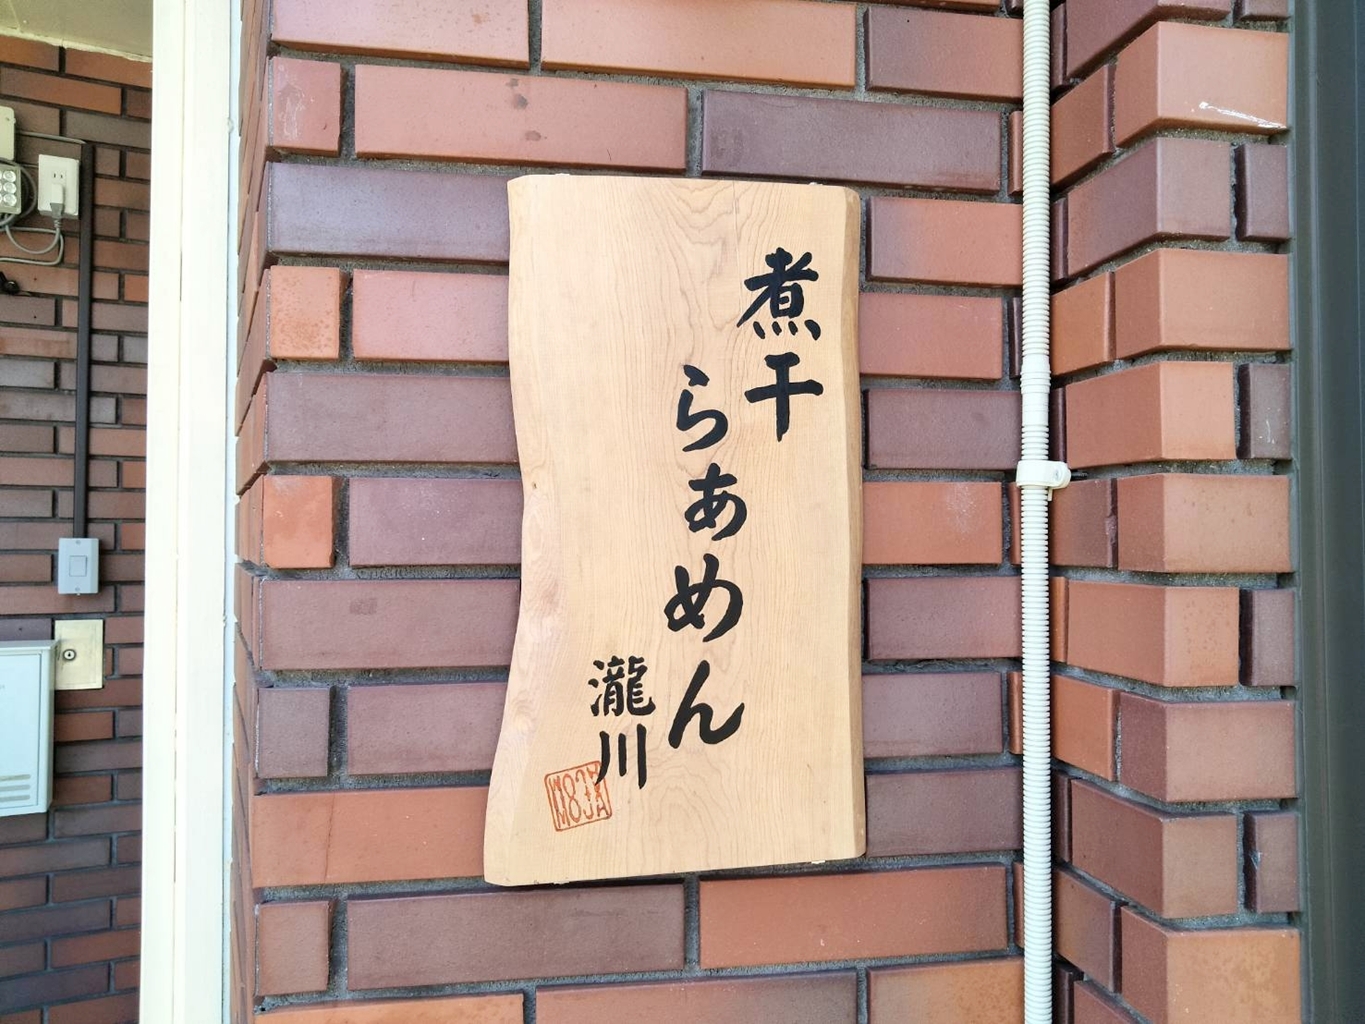 煮干
らぁめん
瀧川